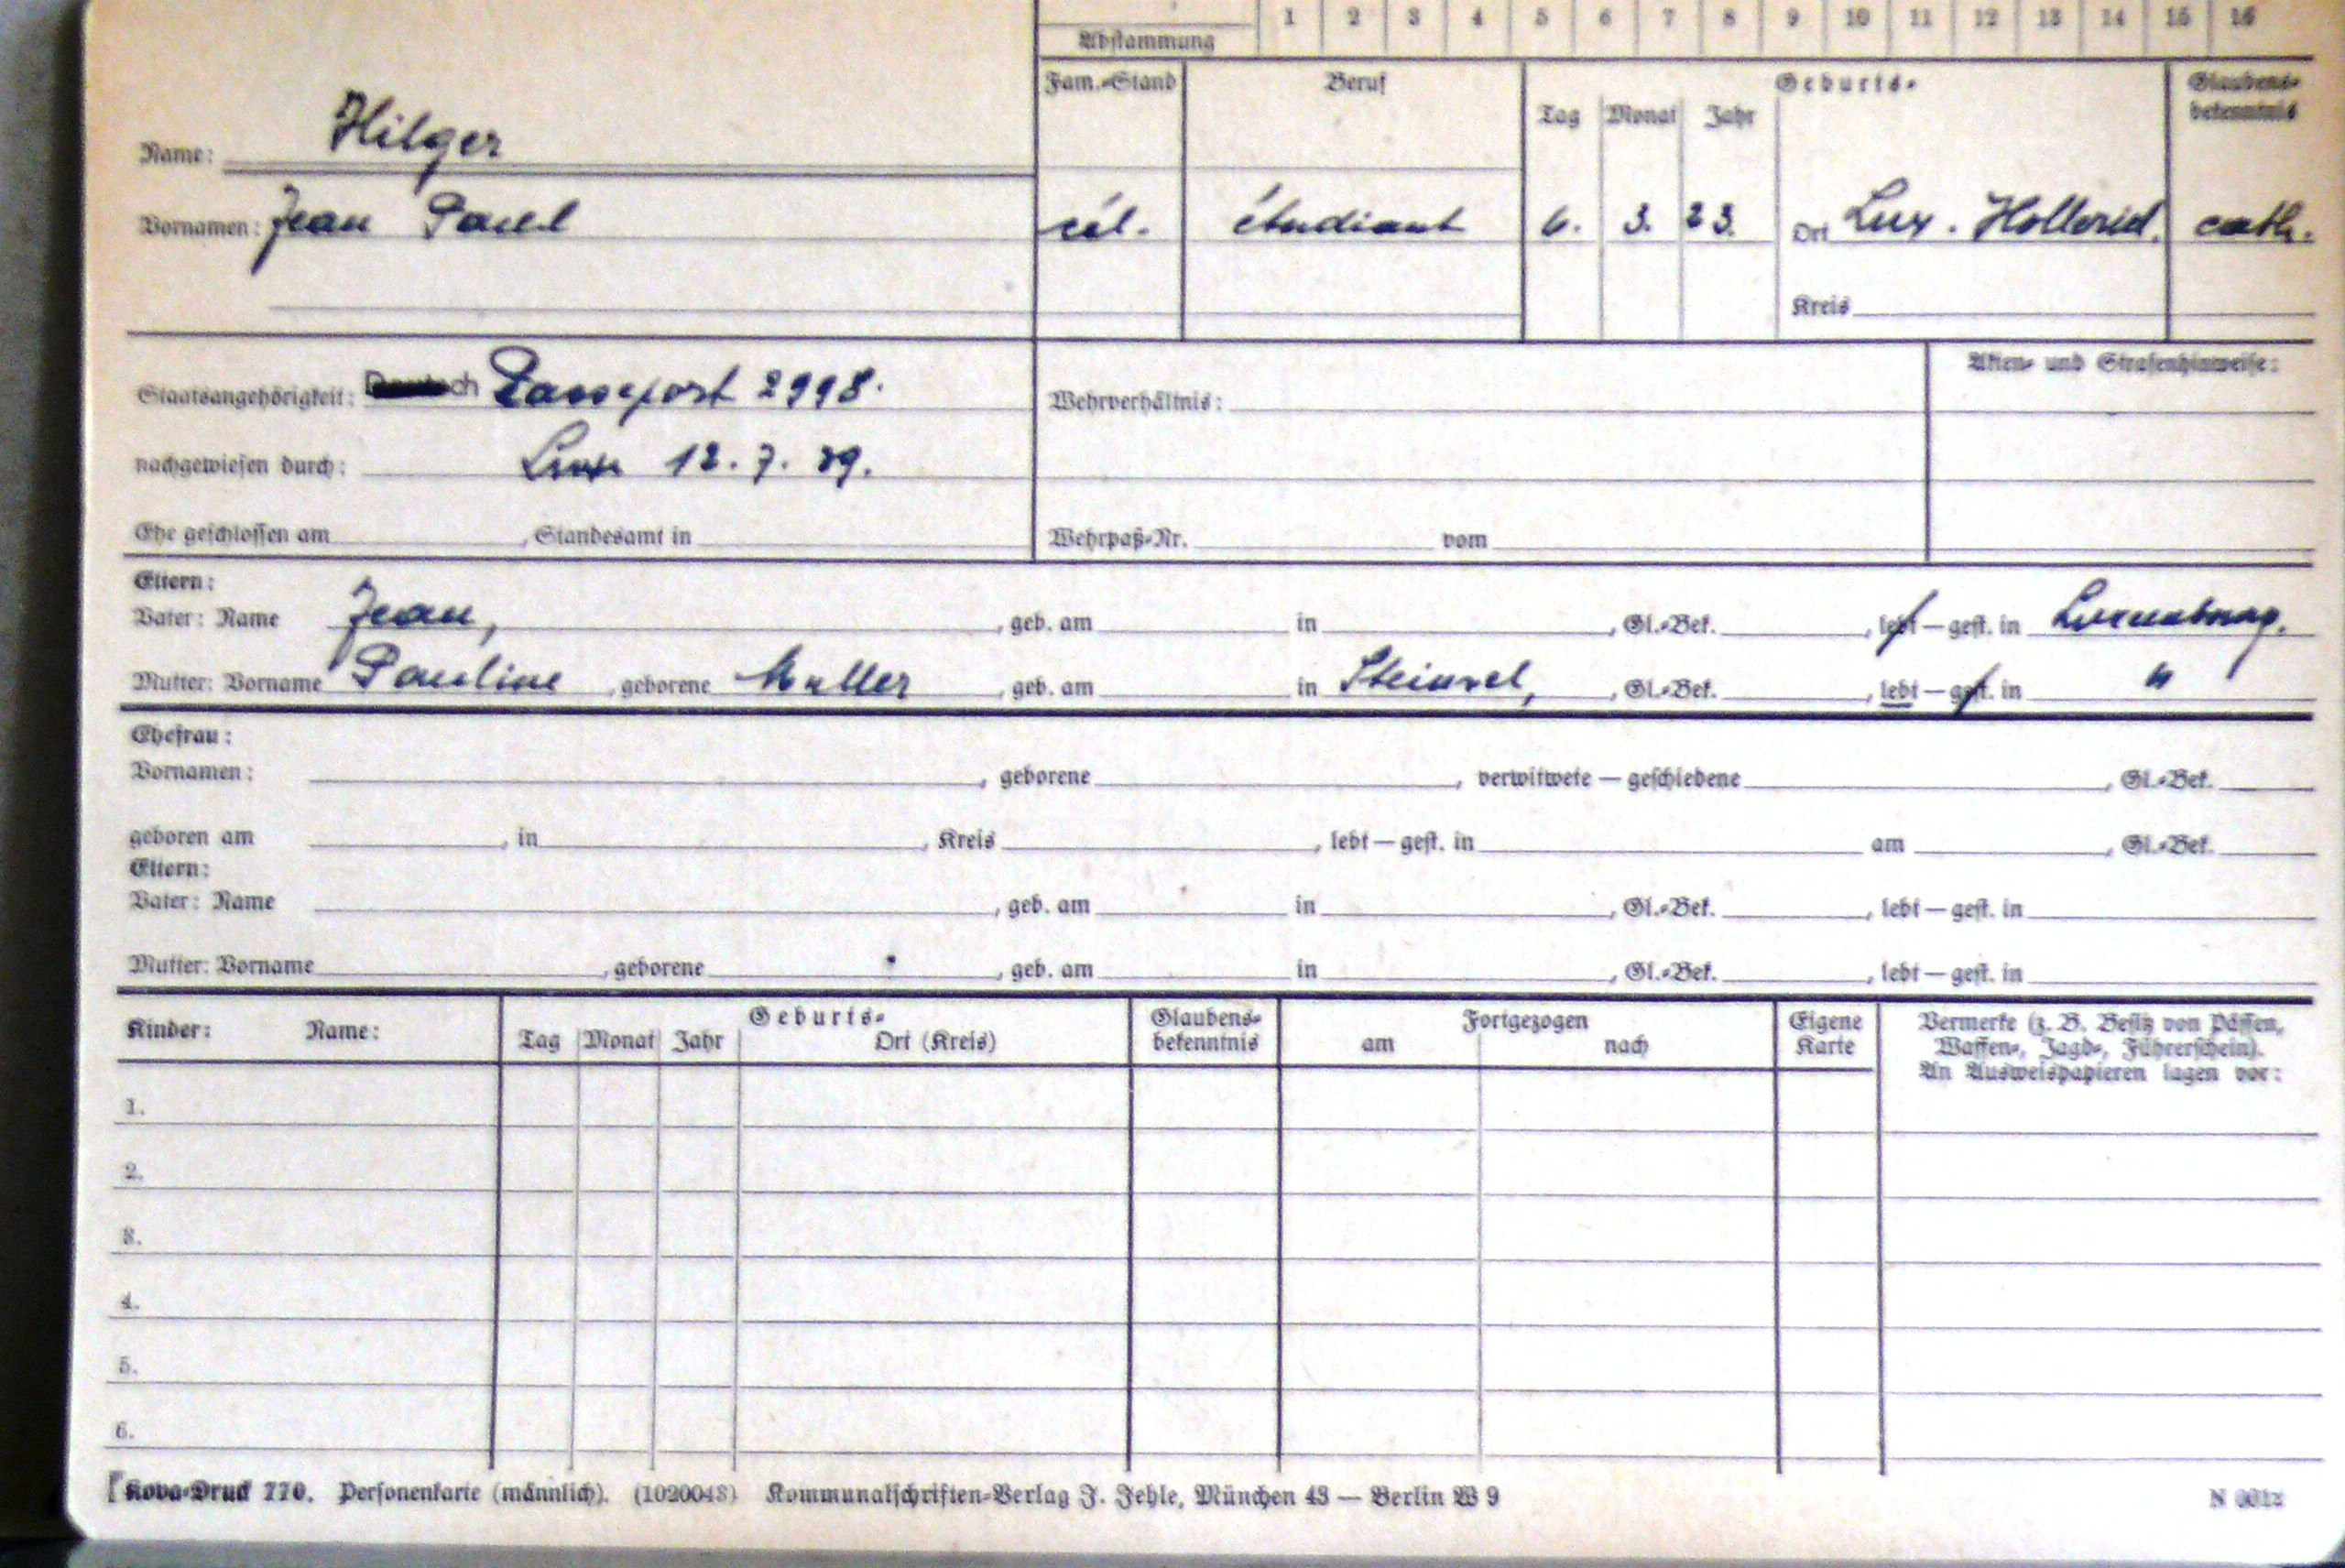 1 2 3 4 5 6 7 8 9 10 11 12 13 14 15 16
Abstammung
Fam.-Stand Beruf Geburts- Glaubens-
Tag Monat Jahr bekenntnis
Name: Hilger
Vornamen: Jean Paul cél. étudiant 6. 3. 23. Ort Lux. Hollerich. cath.
Kreis
Akten- und Strafenhinweise:
Staatsangehörigkeit: Passeport 2998. Wehrverhältnis:
nachgewiesen durch: 12.7.39.
Ehe geschlossen am , Standesamt in Wehrpaß-Nr. vom
Eltern:
Vater: Name Jean, , geb. am in , Gl.-Bek. , lebt — gest. in Luxembourg.
Mutter: Vorname Pauline , geborene Muller , geb. am in Steinsel, , Gl.-Bek. , lebt — gest. in "
Ehefrau:
Vornamen: , geborene , verwitwete — geschiedene , Gl.-Bek.
geboren am , in , Kreis , lebt — gest. in am , Gl.-Bek.
Eltern:
Vater: Name , geb. am in , Gl.-Bek. , lebt — gest. in
Mutter: Vorname , geborene , geb. am in , Gl.-Bek. , lebt — gest. in
Kinder: Name: Geburts- Glaubens- Fortgezogen Eigene Vermerke (z. B. Besitz von Pässen,
Tag Monat Jahr Ort (Kreis) bekenntnis am nach Karte Waffen-, Jagd-, Führerschein).
An Ausweispapieren lagen vor:
1.
2.
3.
4.
5.
6.
Kova-Druck 770. Personenkarte (männlich). (1020048) Kommunalschriften-Verlag J. Jehle, München 43 — Berlin W 9